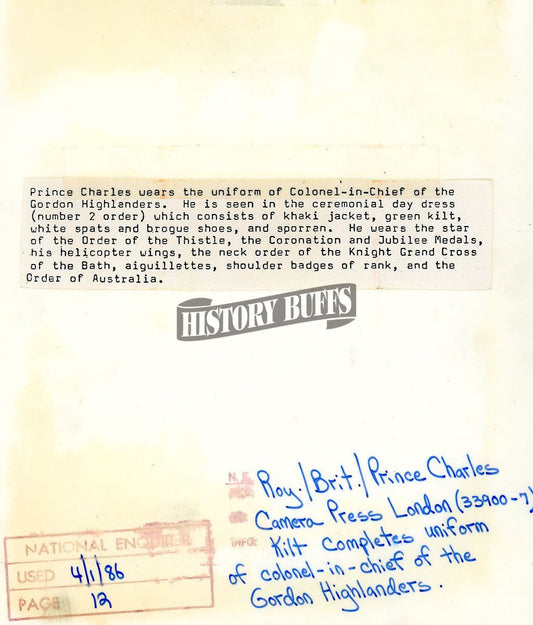 Prince Charles wears the uniform of Colonel-in-Chief of the
Gordon Highlanders.  He is seen in the ceremonial day dress
(number 2 order) which consists of khaki jacket, green kilt,
white spats and brogue shoes, and sporran.  He wears the star
of the Order of the Thistle, the Coronation and Jubilee Medals,
his helicopter wings, the neck order of the Knight Grand Cross
of the Bath, aiguillettes, shoulder badges of rank, and the
Order of Australia.
HISTORY BUFFS
N.E. Roy./Brit./Prince Charles
Camera Press London (33900-7)
INFO: Kilt completes uniform
of colonel-in-chief of the
Gordon Highlanders.
NATIONAL ENQUIRER
USED 4/1/86
PAGE 12